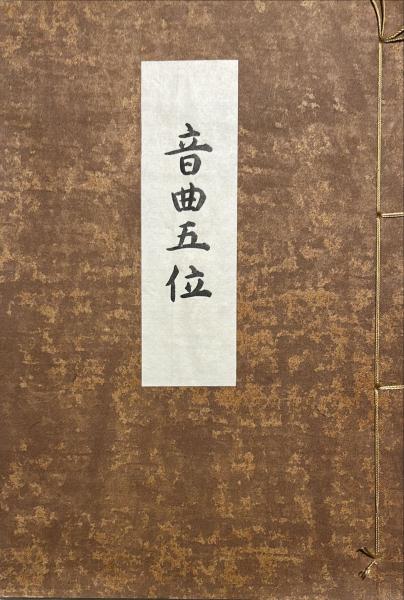 音曲五位